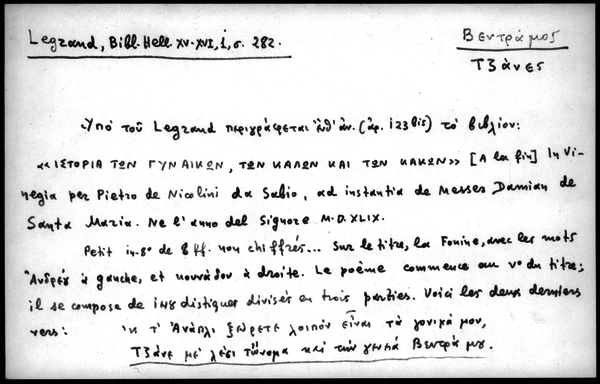 Legrand, Bibl. Hell. XV-XVI, i, σ. 282.
Βεντράμος
Τζάνες
Ὑπὸ τοῦ Legrand περιγράφεται ἐνθ' ἀν. (ἀρ. 123 bis) τὸ βιβλίον:
«ΙΣΤΟΡΙΑ ΤΩΝ ΓΥΝΑΙΚΩΝ, ΤΩΝ ΚΑΛΩΝ ΚΑΙ ΤΩΝ ΚΑΚΩΝ» [A la fin] In Vi-
negia per Pietro de Nicolini da Sabio, ad instantia de Messer Damian de
Santa Maria. Ne l'anno del Signore M.D.XLIX.
Petit in-8° de 8 ff. non chiffrés... Sur le titre, la Fortune, avec les mots
Ἀνδρέου à gauche, et κουνάδου à droite. Le poème commence au v° du titre;
il se compose de distiques divisés en trois parties. Voici les deux derniers
vers: Ἐκ τ' Ἀνάπλι ξεύρετε λοιπὸν εἶναι τὰ γονικά μου,
Τζάνε μὲ λέσι τὤνομα καὶ τὴν γενεὰ Βεντράμου.